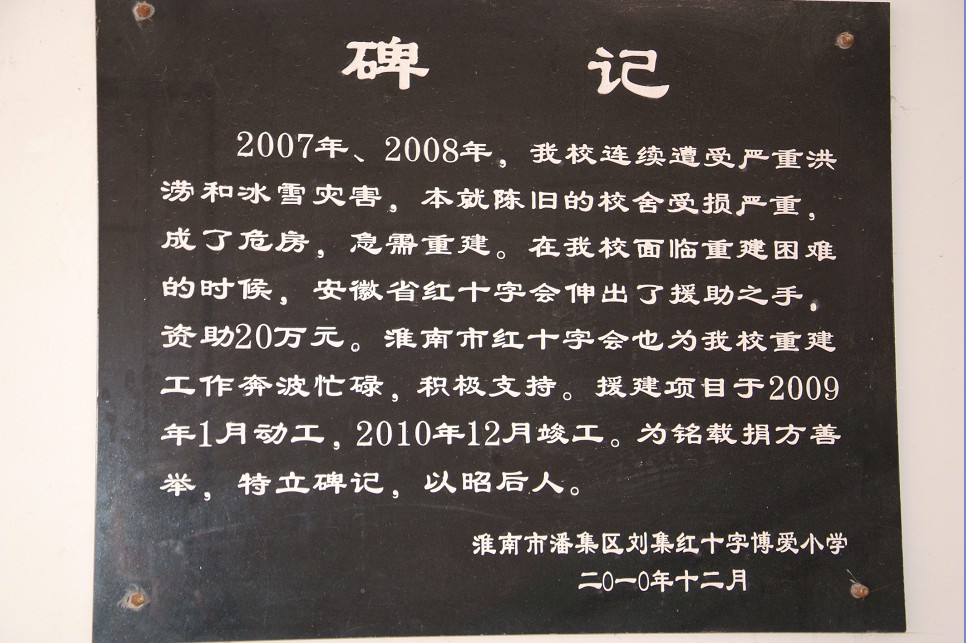 碑 记
2007年、2008年，我校连续遭受严重洪
涝和冰雪灾害，本就陈旧的校舍受损严重，
成了危房，急需重建。在我校面临重建困难
的时候，安徽省红十字会伸出了援助之手，
资助20万元。淮南市红十字会也为我校重建
工作奔波忙碌，积极支持。援建项目于2009
年1月动工，2010年12月竣工。为铭载捐方善
举，特立碑记，以昭后人。
淮南市潘集区刘集红十字博爱小学
二0一0年十二月